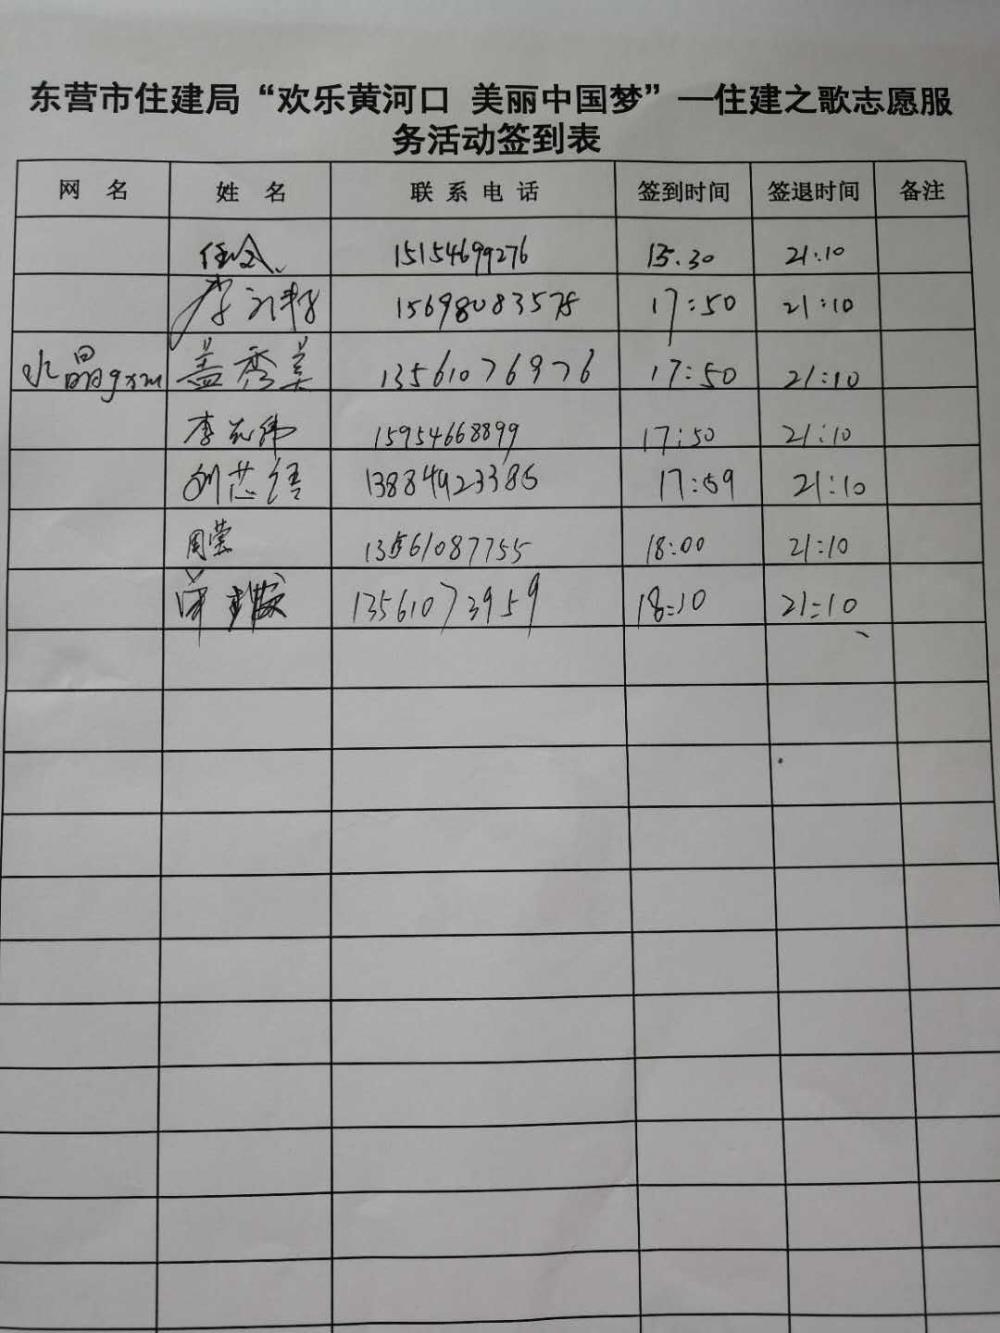 东营市住建局“欢乐黄河口 美丽中国梦”—住建之歌志愿服
务活动签到表
网 名 姓 名 联 系 电 话 签到时间 签退时间 备注
15154699276 15.30 21:10
李 17:50 21:10
水晶gxm 盖秀美 13561076976 17:50 21:10
李 15954668899 17:50 21:10
刘芯语 13884923386 17:59 21:10
周莹 13561087755 18:00 21:10
13561073959 18:10 21:10